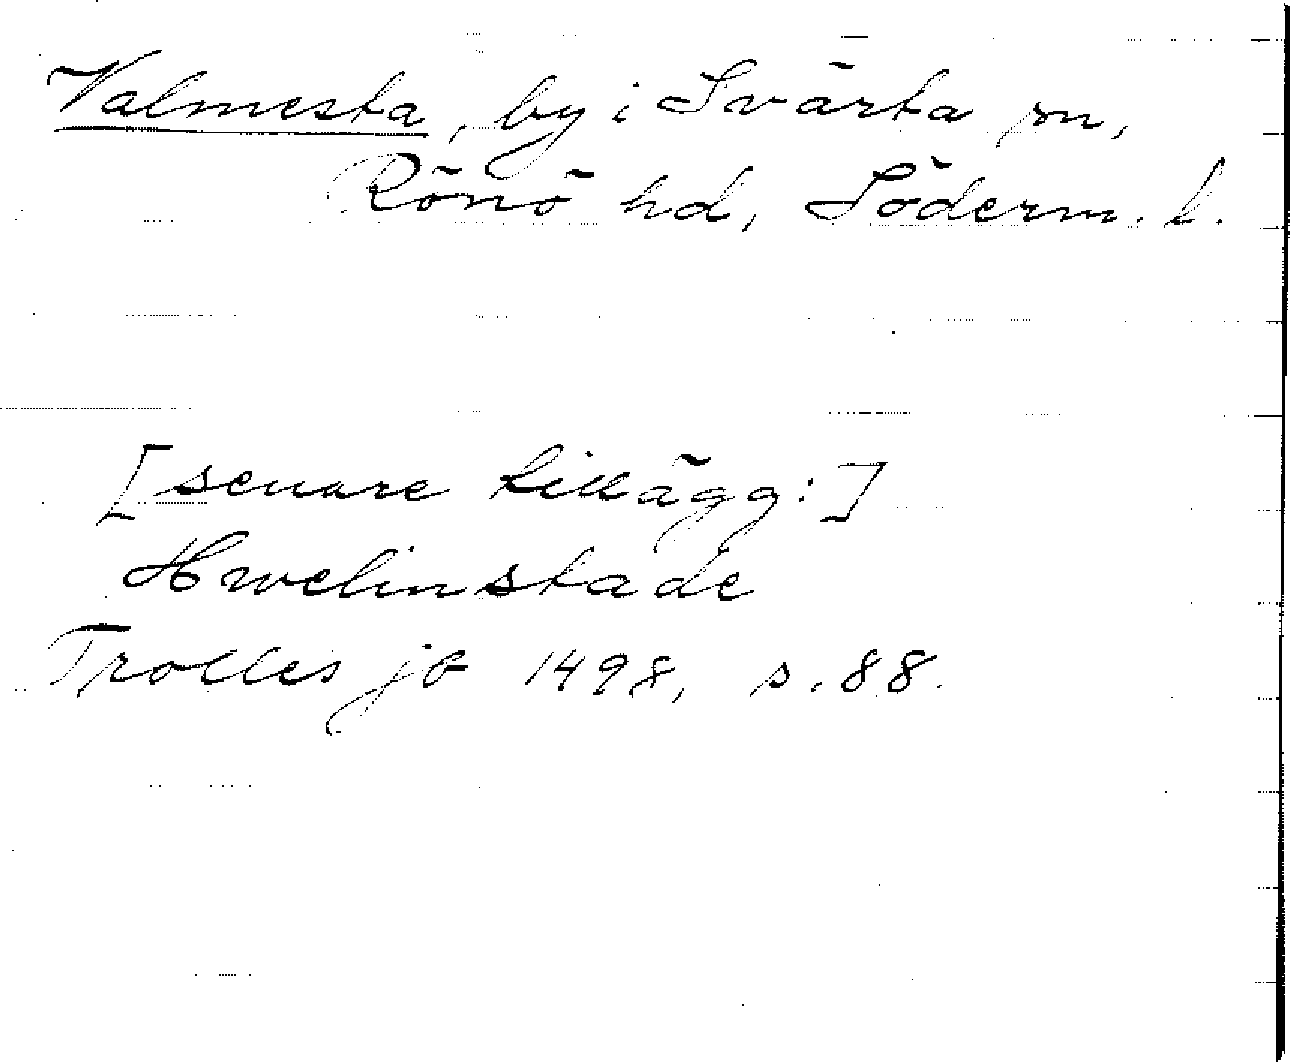 Valmesta, by i Svärta sn,
Rönö hd, Söderm. l.
[senare tillägg:]
Hwelinstade
Trolles jb 1498, s. 88.